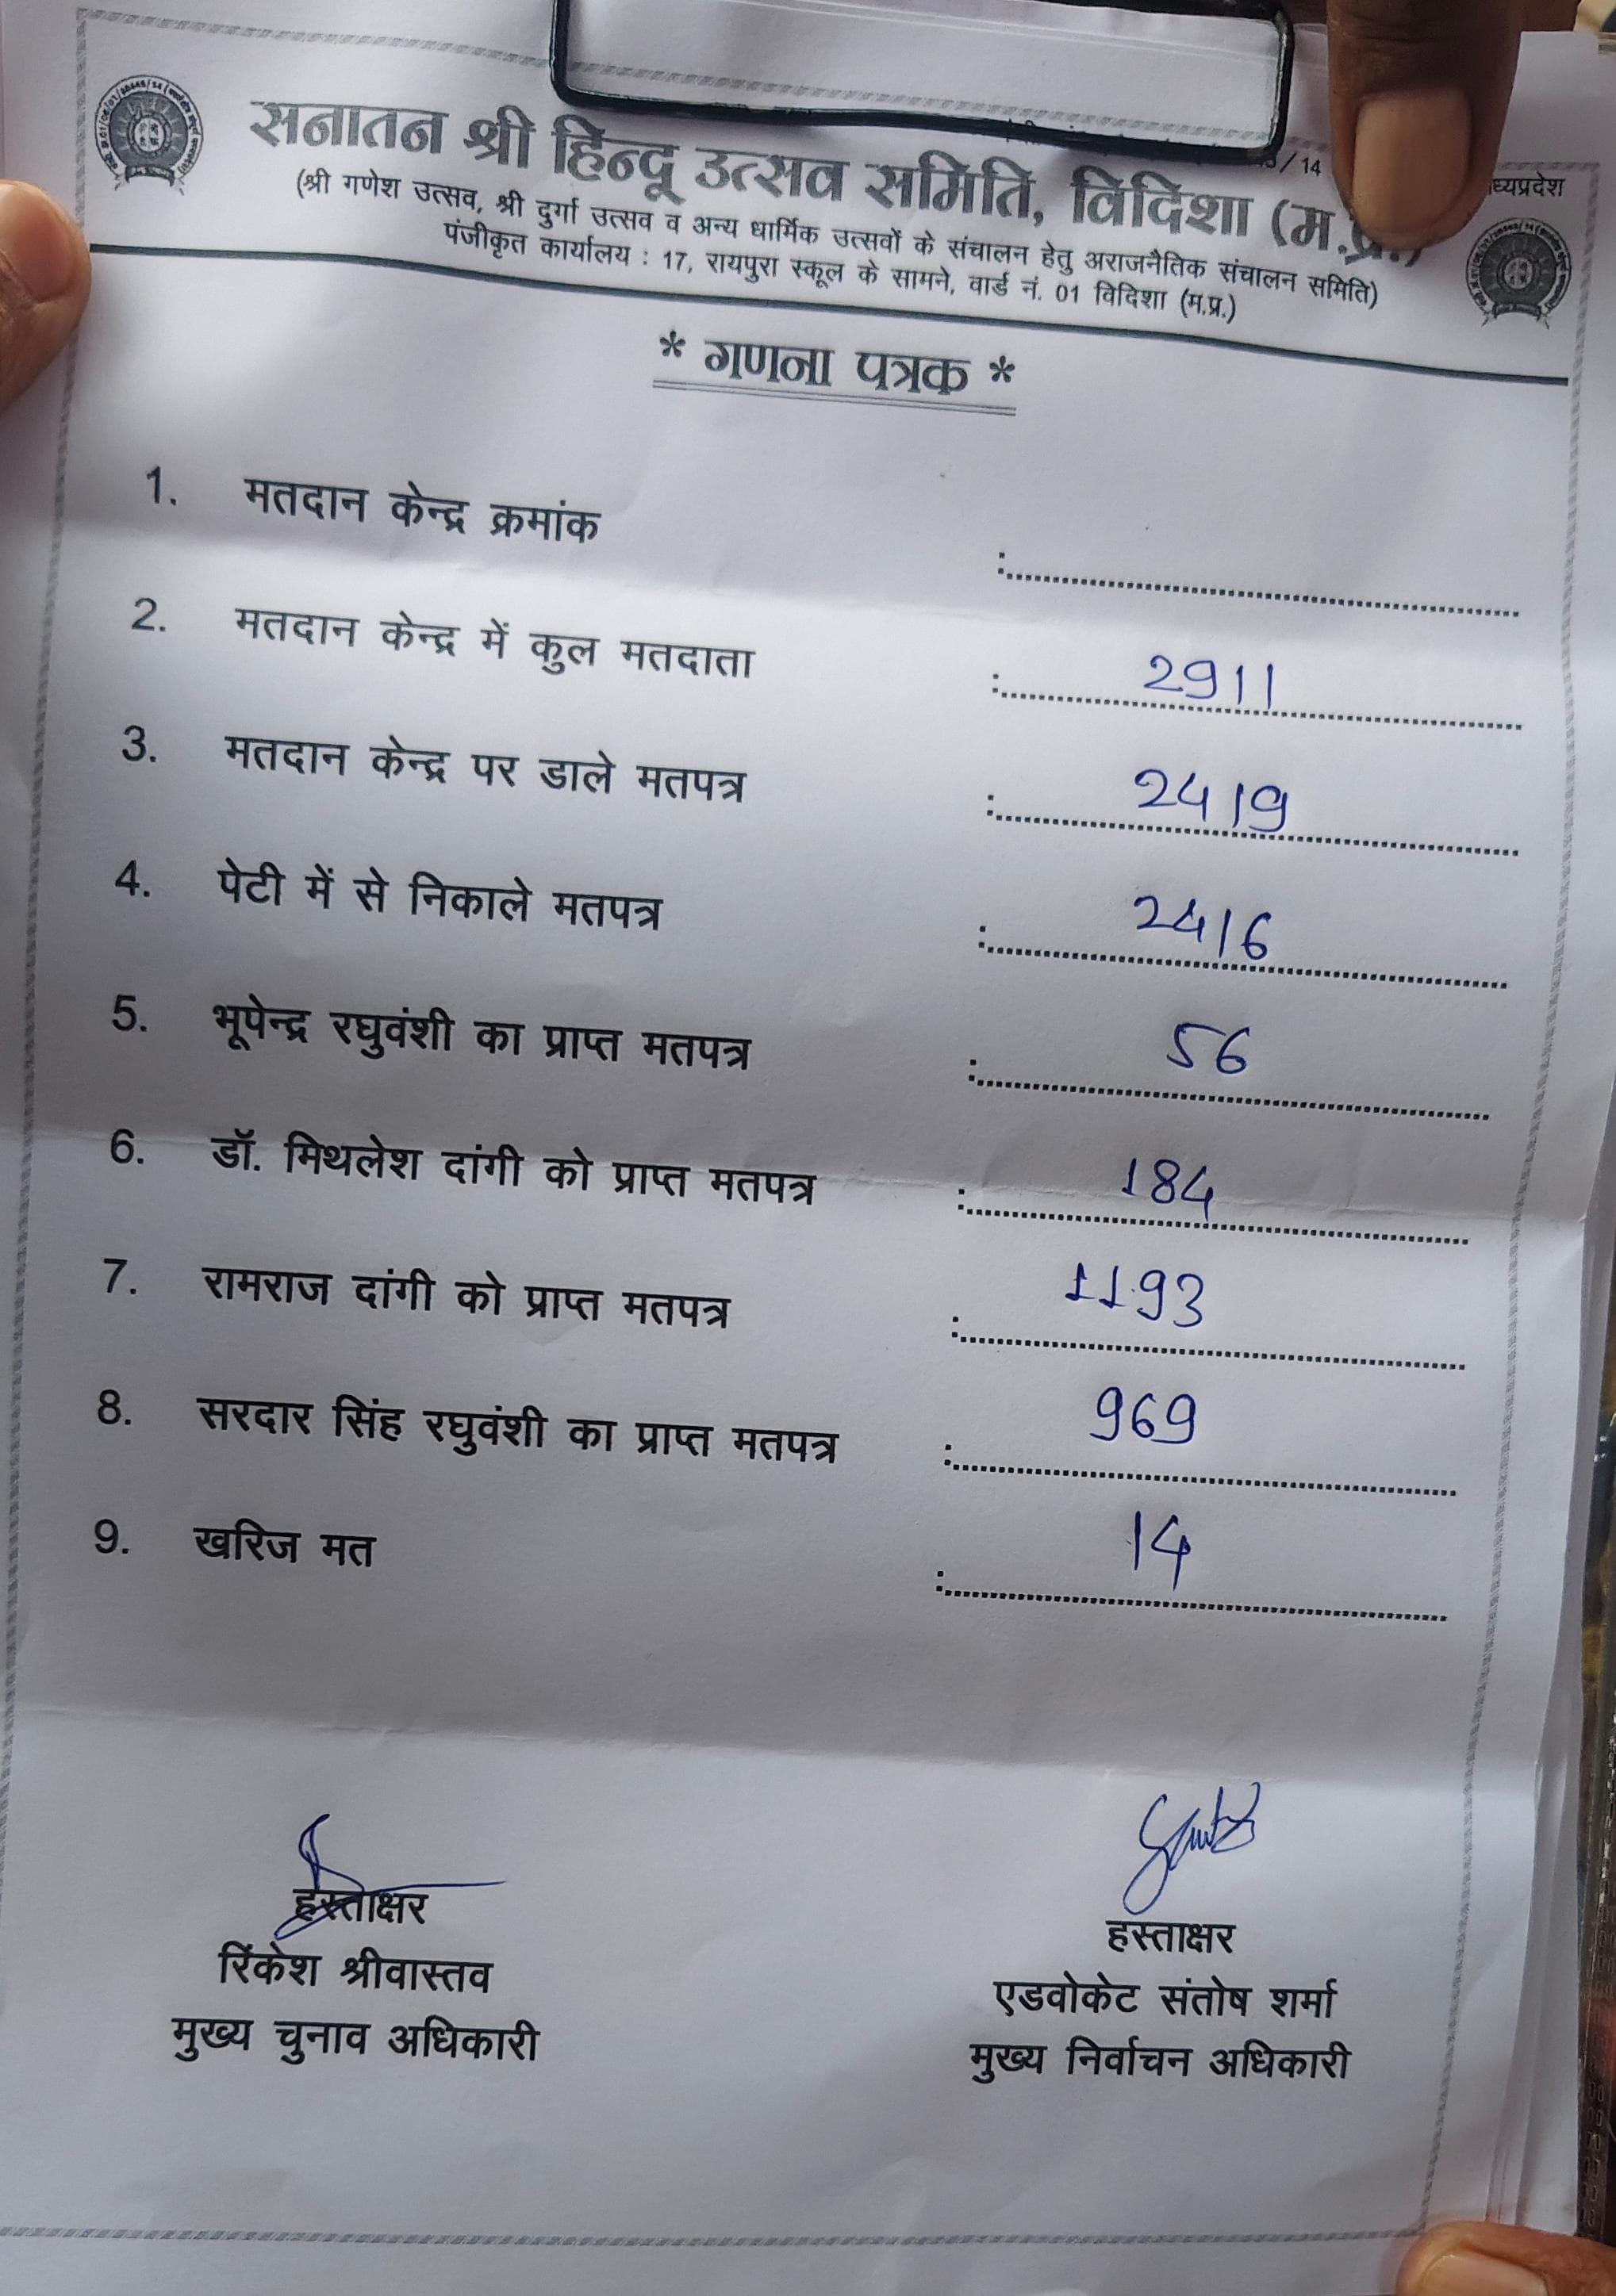 सनातन श्री हिन्दू उत्सव समिति, विदिशा (म.प्र.)
/14
ध्यप्रदेश
(श्री गणेश उत्सव, श्री दुर्गा उत्सव व अन्य धार्मिक उत्सवों के संचालन हेतु अराजनैतिक संचालन समिति)
पंजीकृत कार्यालय : 17, रायपुरा स्कूल के सामने, वार्ड नं. 01 विदिशा (म.प्र.)
* गणना पत्रक *
1. मतदान केन्द्र क्रमांक :
2. मतदान केन्द्र में कुल मतदाता : 2911
3. मतदान केन्द्र पर डाले मतपत्र : 2419
4. पेटी में से निकाले मतपत्र : 2416
5. भूपेन्द्र रघुवंशी का प्राप्त मतपत्र : 56
6. डॉ. मिथलेश दांगी को प्राप्त मतपत्र : 184
7. रामराज दांगी को प्राप्त मतपत्र : 1193
8. सरदार सिंह रघुवंशी का प्राप्त मतपत्र : 969
9. खरिज मत : 14
हस्ताक्षर
रिंकेश श्रीवास्तव
मुख्य चुनाव अधिकारी
हस्ताक्षर
एडवोकेट संतोष शर्मा
मुख्य निर्वाचन अधिकारी